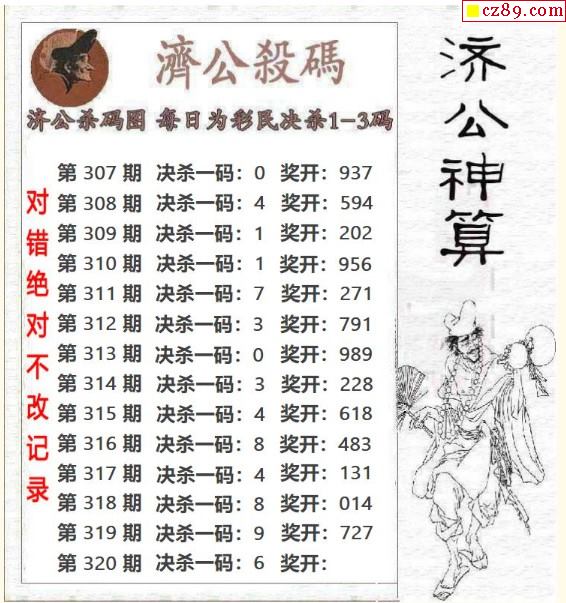 cz89.com
濟公殺碼
济公杀码图 每日为彩民决杀1-3码
第 307 期 决杀一码：0 奖开：937
第 308 期 决杀一码：4 奖开：594
第 309 期 决杀一码：1 奖开：202
第 310 期 决杀一码：1 奖开：956
第 311 期 决杀一码：7 奖开：271
第 312 期 决杀一码：3 奖开：791
第 313 期 决杀一码：0 奖开：989
第 314 期 决杀一码：3 奖开：228
第 315 期 决杀一码：4 奖开：618
第 316 期 决杀一码：8 奖开：483
第 317 期 决杀一码：4 奖开：131
第 318 期 决杀一码：8 奖开：014
第 319 期 决杀一码：9 奖开：727
第 320 期 决杀一码：6 奖开：
对错绝对不改记录
济公神算